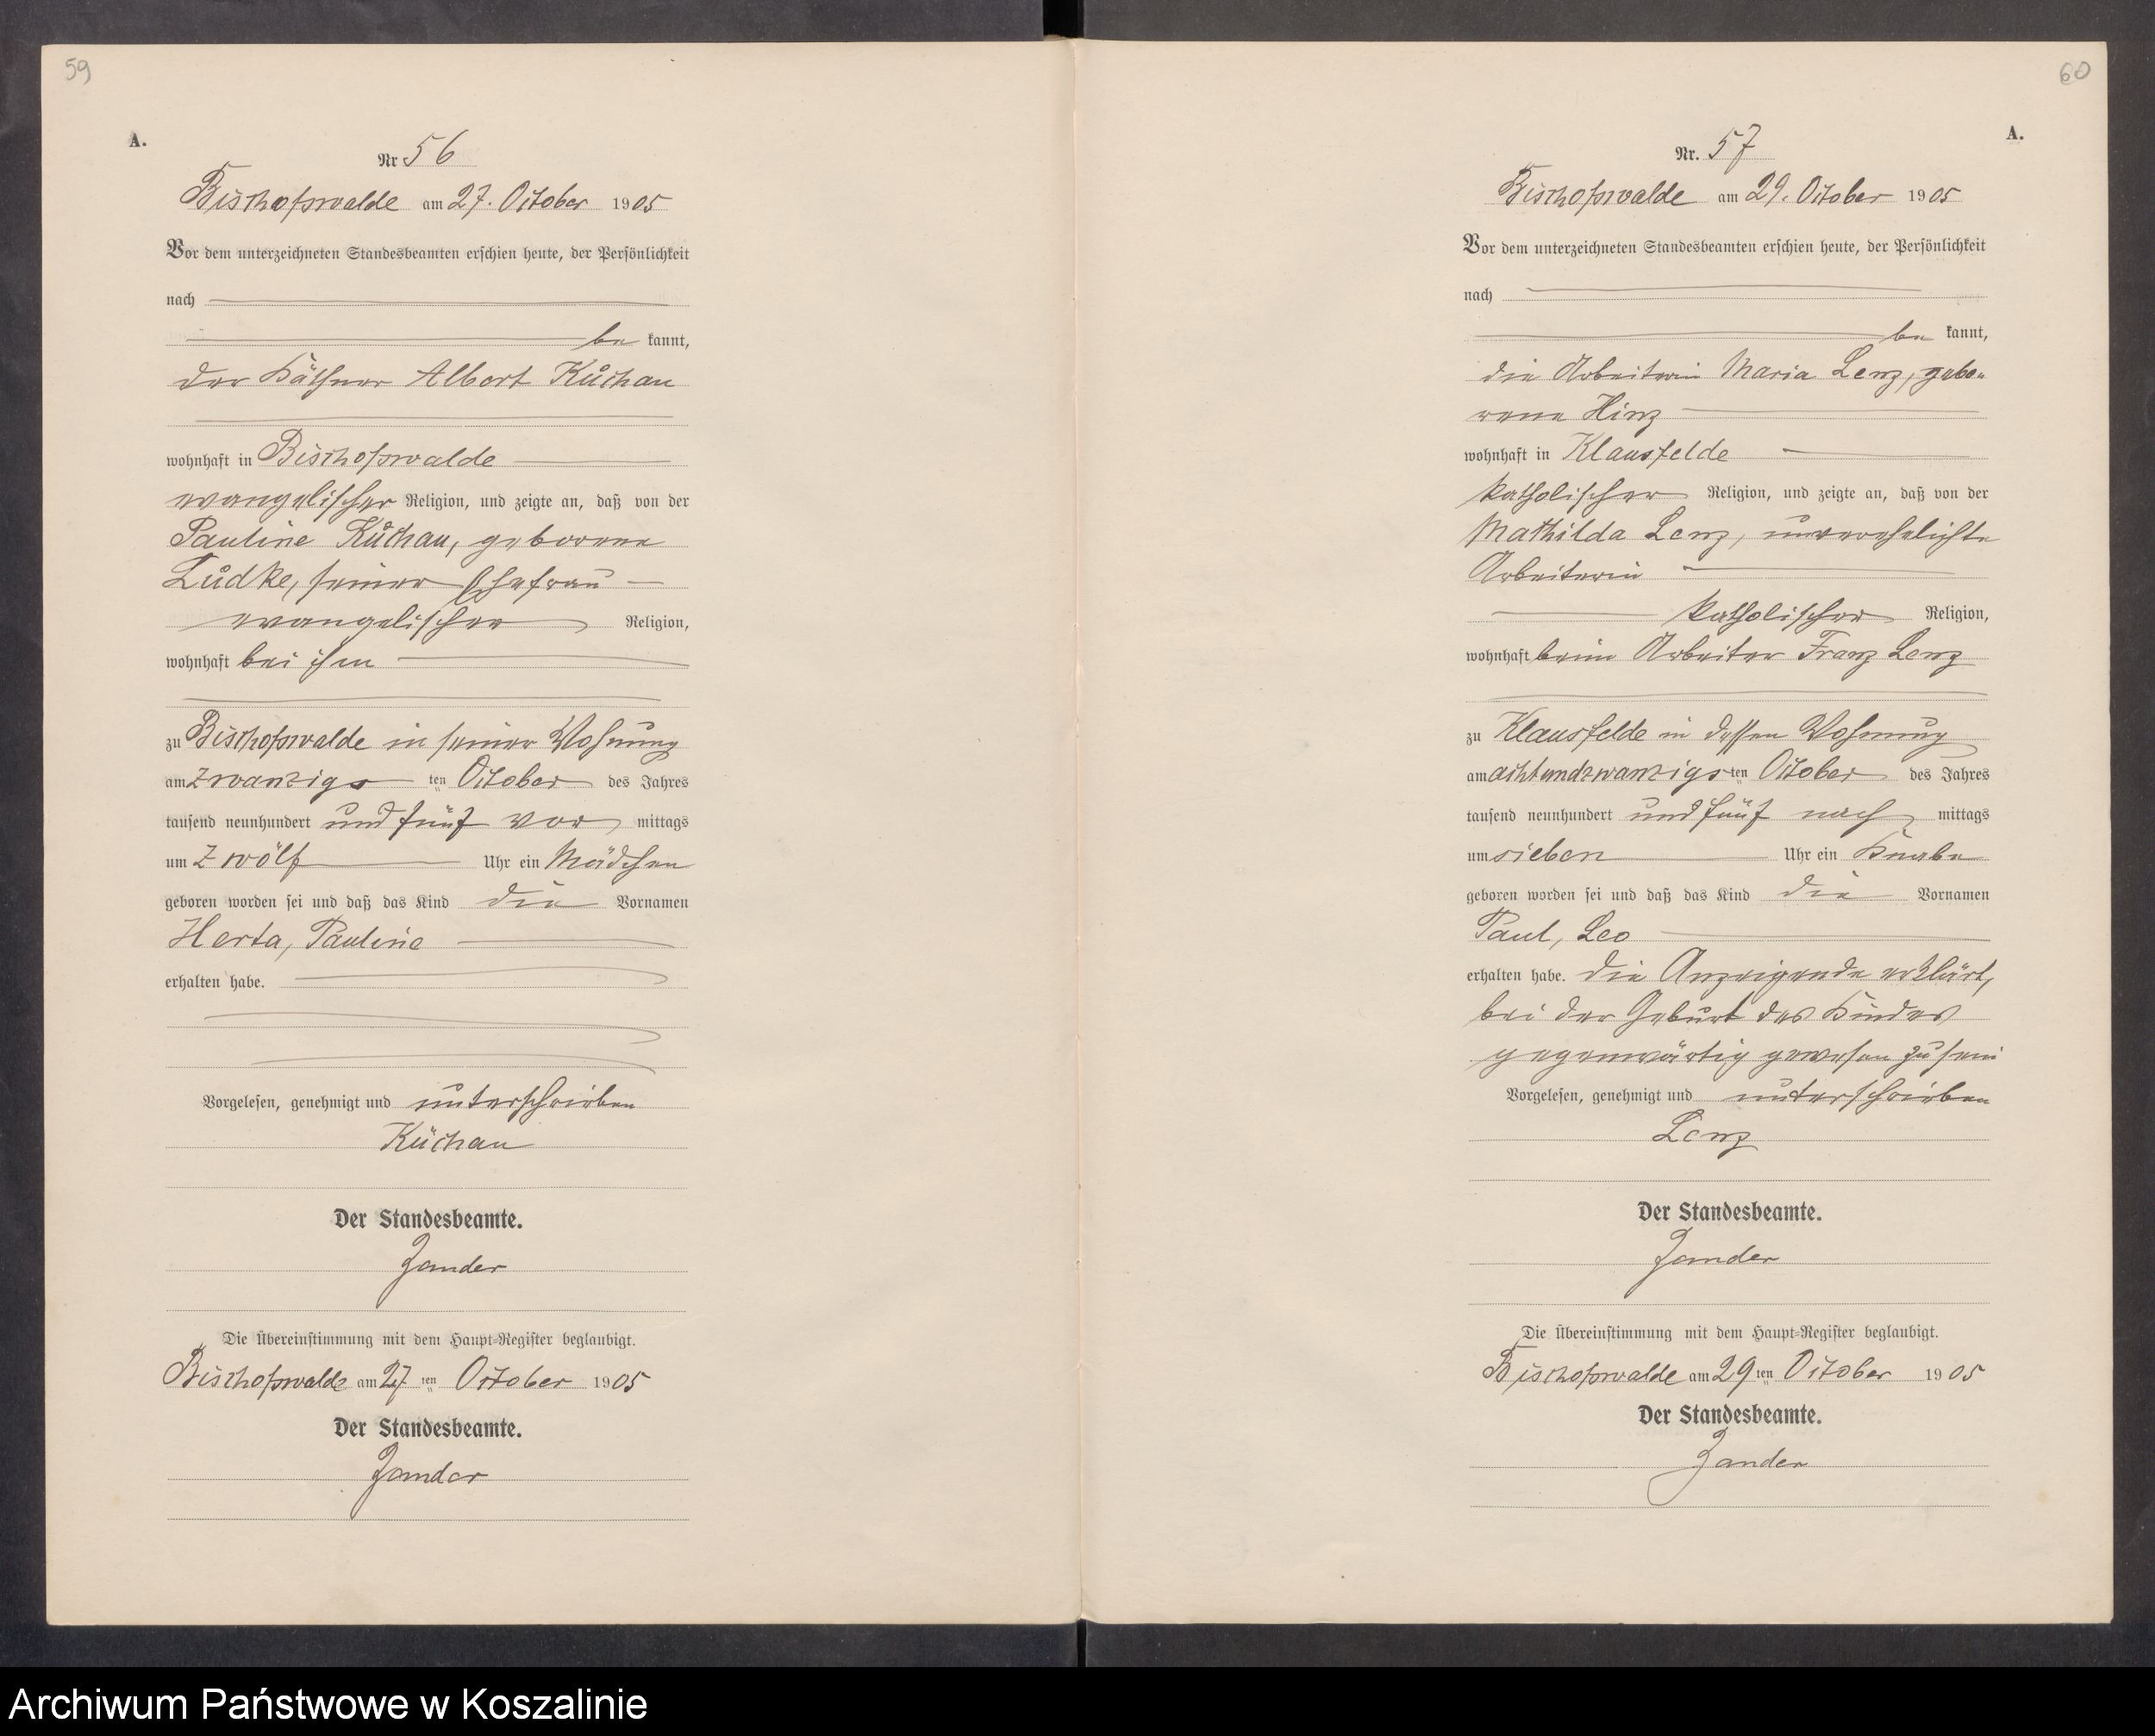 59
A.
Nr 56
Bischofswalde am 27. October 1905
Vor dem unterzeichneten Standesbeamten erschien heute, der Persönlichkeit
nach
be kannt,
der Käthner Albert Küchau
wohnhaft in Bischofswalde
evangelischer Religion, und zeigte an, daß von der
Pauline Küchau, geborene
Lüdke, seiner Ehefrau
evangelischer Religion,
wohnhaft bei ihm
zu Bischofswalde in seiner Wohnung
am zwanzigsten October des Jahres
tausend neunhundert und fünf vor mittags
um zwölf Uhr ein Mädchen
geboren worden sei und daß das Kind die Vornamen
Herta, Pauline
erhalten habe.
Vorgelesen, genehmigt und unterschrieben
Küchau
Der Standesbeamte.
Zander
Die Übereinstimmung mit dem Haupt-Register beglaubigt.
Bischofswalde am 27ten October 1905
Der Standesbeamte.
Zander
60
A.
Nr. 57
Bischofswalde am 29. October 1905
Vor dem unterzeichneten Standesbeamten erschien heute, der Persönlichkeit
nach
be kannt,
die Arbeiterin Maria Lenz, gebo-
rene Hinz
wohnhaft in Klausfelde
katholischer Religion, und zeigte an, daß von der
Mathilda Lenz, unverehelichte
Arbeiterin
katholischer Religion,
wohnhaft beim Arbeiter Franz Lenz
zu Klausfelde in dessen Wohnung
am achtundzwanzigsten October des Jahres
tausend neunhundert und fünf nach mittags
um sieben Uhr ein Knabe
geboren worden sei und daß das Kind die Vornamen
Paul, Leo
erhalten habe. Die Anzeigende erklärt,
bei der Geburt des Kindes
gegenwärtig gewesen zu sein
Vorgelesen, genehmigt und unterschrieben
Lenz
Der Standesbeamte.
Zander
Die Übereinstimmung mit dem Haupt-Register beglaubigt.
Bischofswalde am 29ten October 1905
Der Standesbeamte.
Zander
Archiwum Państwowe w Koszalinie